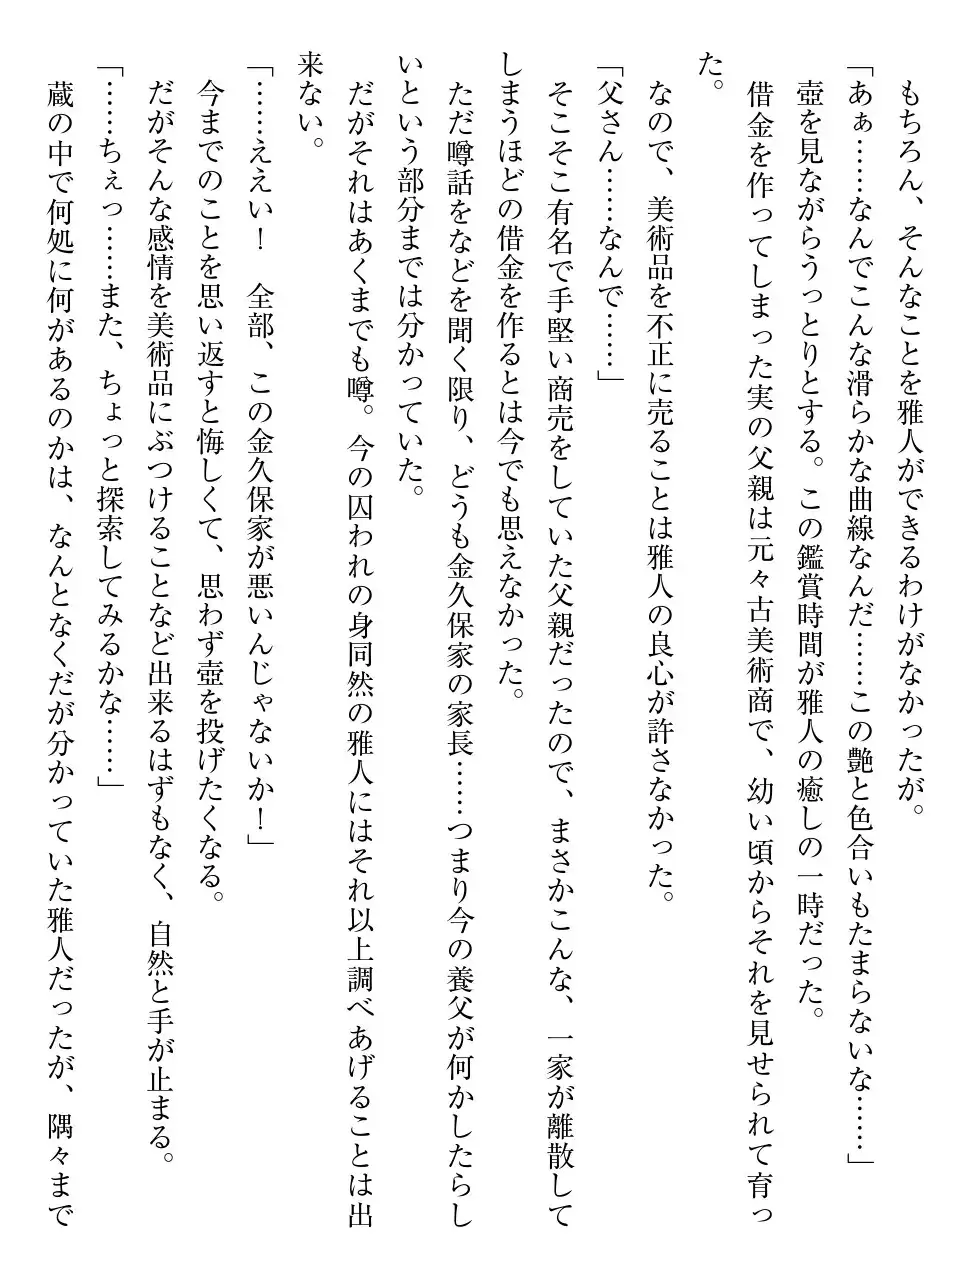 もちろん、そんなことを雅人ができるわけがなかったが。
「あぁ……なんでこんな滑らかな曲線なんだ……この艶と色合いもたまらないな……」
壺を見ながらうっとりとする。この鑑賞時間が雅人の癒しの一時だった。
借金を作ってしまった実の父親は元々古美術商で、幼い頃からそれを見せられて育っ
た。
なので、美術品を不正に売ることは雅人の良心が許さなかった。
「父さん……なんで……」
そこそこ有名で手堅い商売をしていた父親だったので、まさかこんな、一家が離散して
しまうほどの借金を作るとは今でも思えなかった。
ただ噂話をなどを聞く限り、どうも金久保家の家長……つまり今の養父が何かしたらし
いという部分までは分かっていた。
だがそれはあくまでも噂。今の囚われの身同然の雅人にはそれ以上調べあげることは出
来ない。
「……ええい！　全部、この金久保家が悪いんじゃないか！」
今までのことを思い返すと悔しくて、思わず壺を投げたくなる。
だがそんな感情を美術品にぶつけることなど出来るはずもなく、自然と手が止まる。
「……ちぇっ……また、ちょっと探索してみるかな……」
蔵の中で何処に何があるのかは、なんとなくだが分かっていた雅人だったが、隅々まで